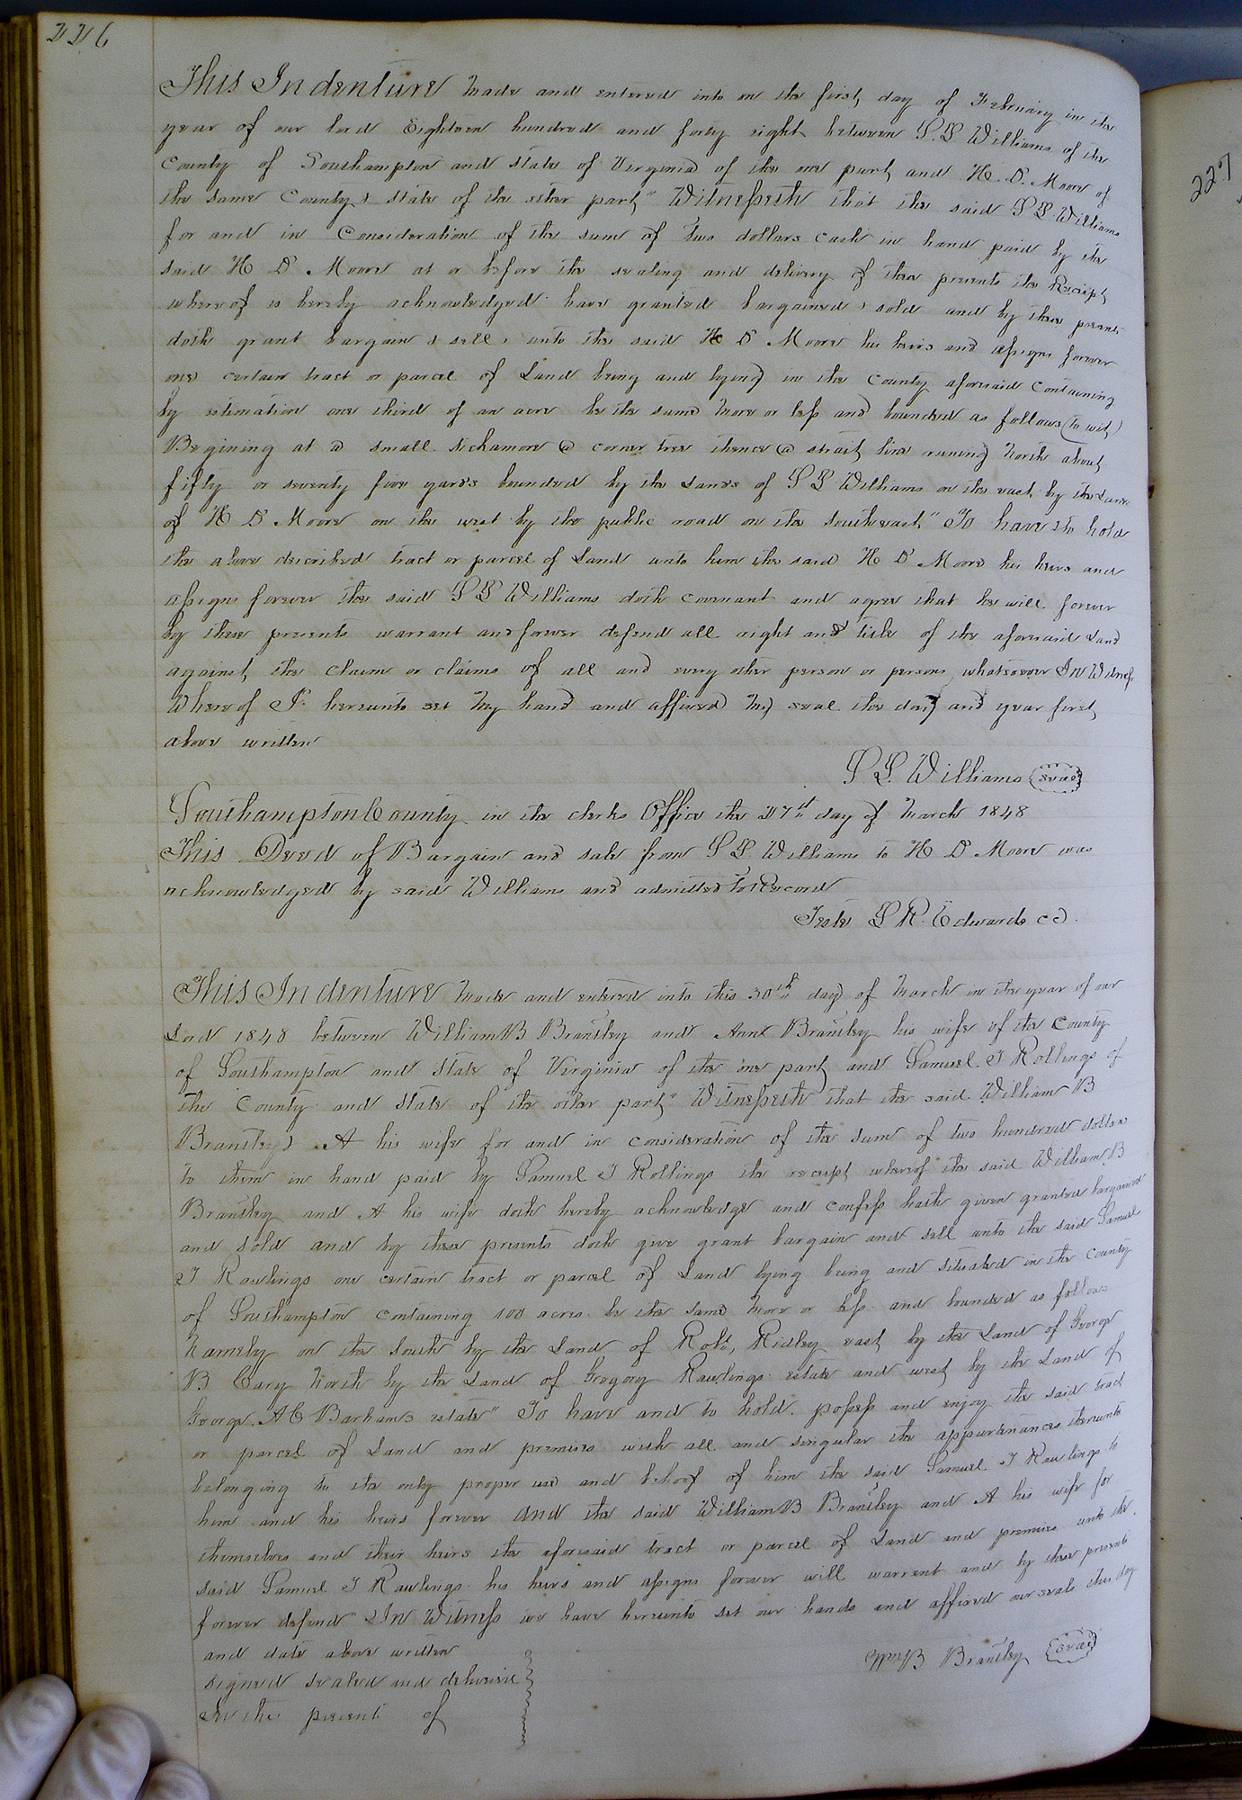 226
This Indenture made and entered into on the first day of February in the
year of our lord Eighteen hundred and forty eight between S. S Williams of the
County of Southampton and state of Virginia of the one part and H. D. Moore of
the same County & state of the other part" Witnesseth that the said S S Williams
for and in Consideration of the sum of two dollars cash in hand paid by the
said H D Moore at or before the sealing and delivery of these presents the Receipt
whereof is hereby acknowledged have granted bargained & sold and by these presents
doth grant bargain & sell, unto the said H D Moore his heirs and assigns forever
one certain tract or parcel of Land being and lying in the County aforesaid Containing
by estimation one third of an acre be the same more or less and bounded as follows (to wit)
Begining at a small sickamore a corner tree thence a strait line runing North about
fifty or seventy five yards bounded by the Lands of S S Williams on the east by the Lands
of H D Moore on the west by the public road on the southeast" To have & to hold
the above described tract or parcel of Land unto him the said H D Moore his heirs and
assigns forever the said S S Williams doth covenant and agree that he will forever
by these presents warrant and forever defend all right and title of the aforesaid Land
against the claim or claims of all and every other person or persons whatsoever In Witness
Whereof I hereunto set my hand and affixed my seal the day and year first
above written
S S. Williams (seal)
Southampton County in the clerks Office the 27th day of March 1848
This Deed of Bargain and sale from S S Williams to H D Moore was
acknowledged by said Williams and admitted to Record
Teste L R. Edwards cc
227
This Indenture made and entered into this 30th day of March in the year of our
Lord 1848 between William B Brantley and Ann Brantley his wife of the County
of Southampton and state of Virginia of the one part and Samuel J Rollings of
the County and state of the other part" Witnesseth that the said William B
Brantley & A his wife for and in consideration of the sum of two hundred dollars
to them in hand paid by Samuel J Rollings the receipt whereof the said William B
Brantley and A his wife doth hereby acknowledge and confess hath given granted bargained
and sold and by these presents doth give grant bargain and sell unto the said Samuel
J Rawlings one certain tract or parcel of Land lying being and situated in the county
of Southampton containing 100 acres be the same more or less and bounded as follows
namely on the South by the Land of Robt, Ridley east by the Land of George
B Cary North by the Land of Gregory Rawlings estate and west by the Land of
George A C Barhams estate" To have and to hold possess and enjoy the said tract
or parcel of Land and premises with all and singular the appurtenances thereunto
belonging to the only proper use and behoof of him the said Samuel J Rawlings to
him and his heirs forever And the said William B Brantley and A his wife for
themselves and their heirs the aforesaid tract or parcel of Land and premises unto the
said Samuel J Rawlings his heirs and assigns forever will warrent and by these presents
forever defend In Witness we have hereunto set our hands and affixed our seals the day
and date above written
signed sealed and delivered
In the present of
Wm B Brantley (seal)